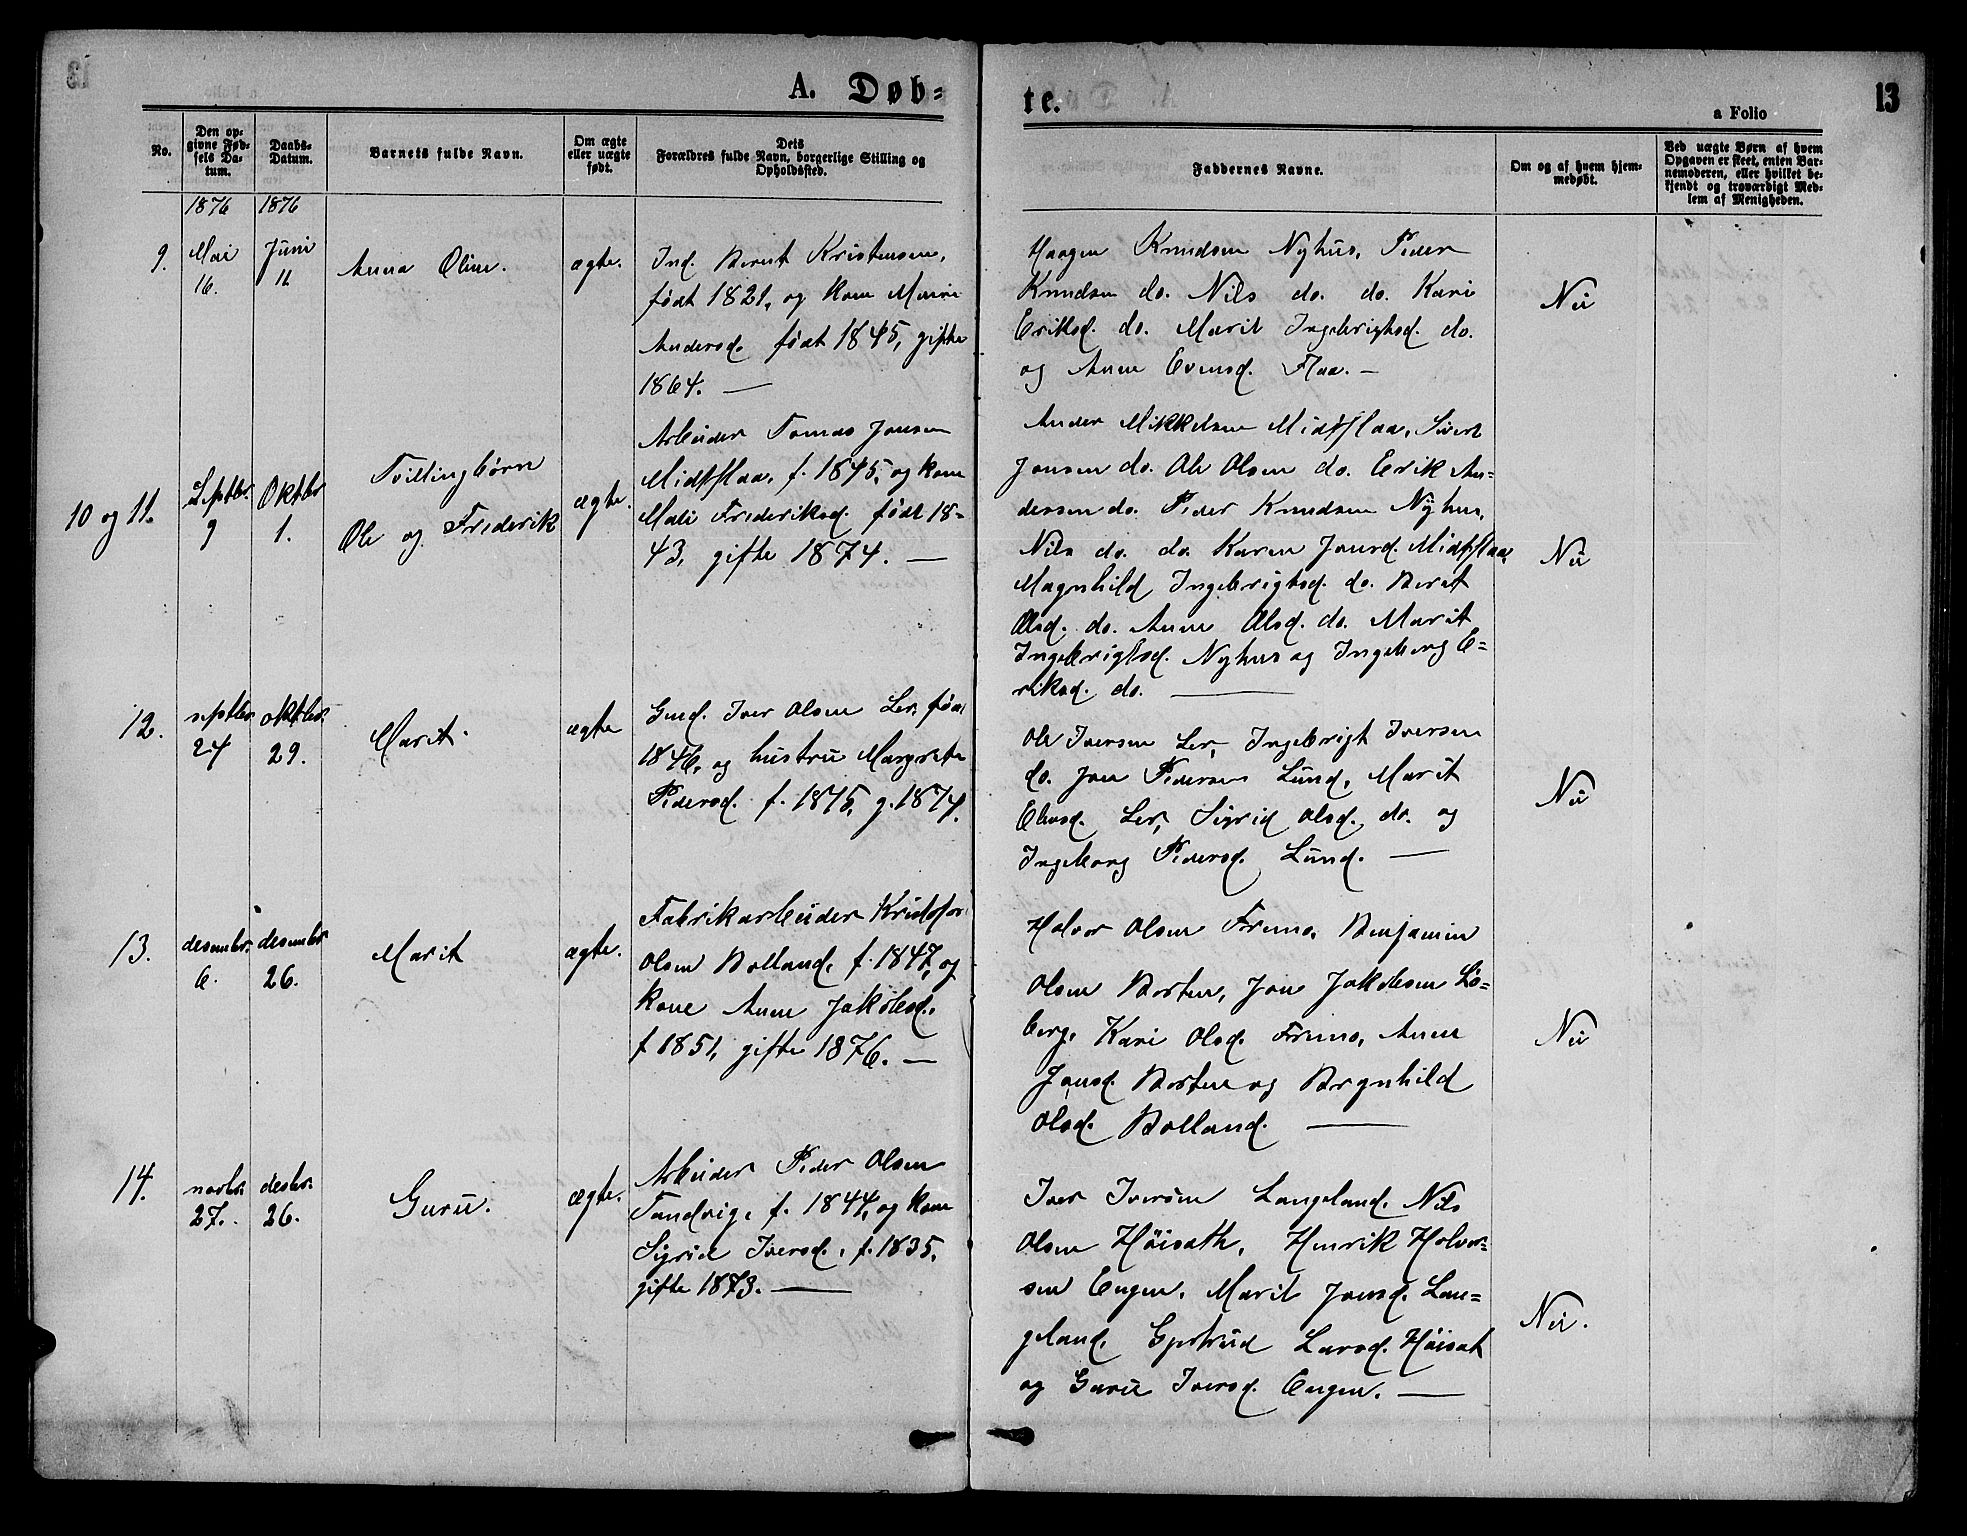 A. Døb=
te.
13
a Folio
No.
Den op=
givne Fød=
sels Da=
tum.
Daabs=
Datum.
Barnets fulde Navn.
Om ægte
eller uægte
født.
Dets
Forældres fulde Navn, borgerlige Stilling og
Opholdssted.
Faddernes Navne.
Om og af hvem hjem=
medøbt.
Ved uægte Børn af hvem
Opgaven er skeet, enten Bar=
nemoderen, eller hvilket be=
kjendt og troværdigt Med=
lem af Menigheden.
1876
1876
9.
Mai
16.
Juni
11
Anna Oline.
ægte.
Ind. Bernt Kristensen,
født 1821, og kone Marie
Andersd. født 1845, gifte
1864. —
Haagen Knudsen Nyhus, Peder
Knudsen do. Nils do. do. Kari
Eriksd. do. Marit Ingebrigtsd. do.
og Anne Evensd. Flaa. —
Nei
10 og 11.
Septbr.
9
Oktbr
1.
Tvillingbørn
Ole og Frederik
ægte.
Arbeider Tomas Jonsen
Midtflaa, f. 1845, og kone
Mali Frederiksd. født 18=
43, gifte 1874. —
Ander Mikkelsen Midtflaa, Sivert
Jonsen do. Ole Olsen do. Erik An=
dersen do. Peder Knudsen Nyhus,
Nils do. do. Karen Jonsd. Midtflaa,
Magnhild Ingebrigtsd. do. Berit
Olsd. do. Anne Olsd. do. Marit
Ingebrigtsd. Nyhus og Ingeborg E=
riksd. do. —
Nei
12.
septbr.
24
oktbr.
29.
Marit.
ægte
Gmd. Iver Olsen Ler, født
1846, og hustru Margrete
Pedersd. f. 1845, g. 1874.
Ole Iversen Ler, Ingebrigt Iversen
do. Jon Pedersen Lund, Marit
Olsd. Ler, Sigrid Olsd. do. og
Ingeborg Pedersd. Lund. —
Nei
13.
desembr.
6.
desembr.
26.
Marit
ægte.
Fabrikarbeider Kristofor
Olsen Bolland, f. 1847, og
kone Anne Jakobsd.
f 1851, gifte 1876. —
Halvor Olsen Fremo, Benjamin
Olsen Borten, Jon Jakobsen Lø=
berg, Kari Olsd. Fremo, Anne
Jonsd. Borten og Brynhild
Olsd. Bolland. —
Nei
14.
novbr.
27.
desbr.
26.
Guru.
ægte.
Arbeider Peder Olsen
Tandvig, f. 1844, og kone
Sigrid Iversd., f. 1835,
gifte 1873. —
Iver Iversen Langeland, Nils
Olsen Høisath, Henrik Halvor=
sen Engen, Marit Jonsd. Lan=
geland, Gjertrud Larsd. Høisat
og Guru Iversd. Engen. —
Nei.